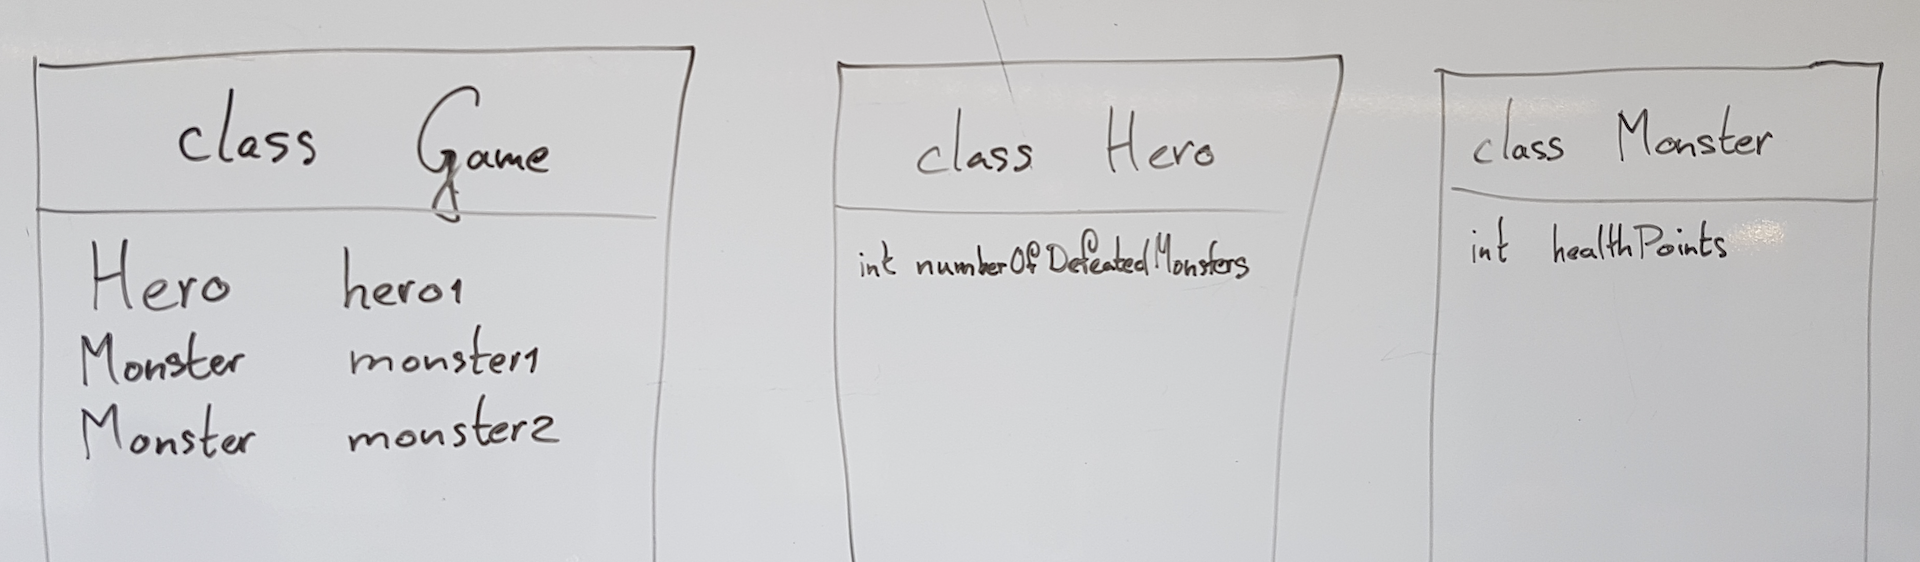 class Game
Hero hero1
Monster monster1
Monster monster2
class Hero
int numberOfDefeatedMonsters
class Monster
int healthPoints